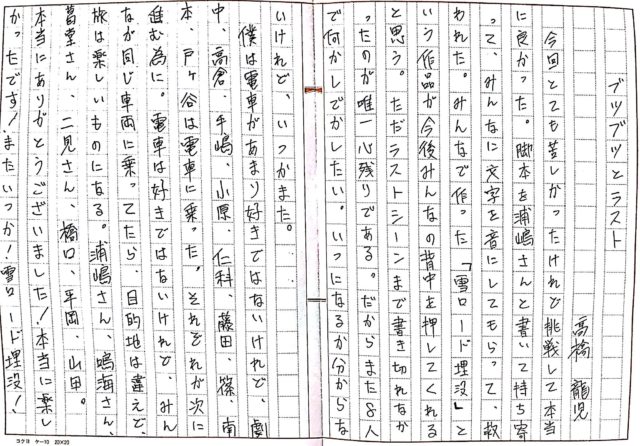 ブツブツとラスト
高橋 龍児
今回とても苦しかったけれど挑戦して本当
に良かった。脚本を浦嶋さんと書いて持ち寄
って、みんなに文字を音にしてもらって、救
われた。みんなで作った「雪ロード埋没」と
いう作品が今後みんなの背中を押してくれる
と思う。ただラストシーンまで書き切れなか
ったのが唯一心残りである。だからまた8人
で何かしでかしたい。いつになるか分からな
いけれど、いつかまた。
僕は電車があまり好きではないけれど、劇
中、高倉、手嶋、小原、仁科、藤田、篠、南
本、戸ヶ谷は電車に乗った。それぞれが次に
進む為に。電車は好きではないけれど、みん
なが同じ車両に乗ってたら、目的地は違えど、
旅は楽しいものになる。浦嶋さん、鳴海さん、
葛堂さん、二見さん、橋口、平岡、山田。
本当にありがとうございました!本当に楽し
かったです!またいつか!雪ロード埋没!
コクヨ ケー10 20X20